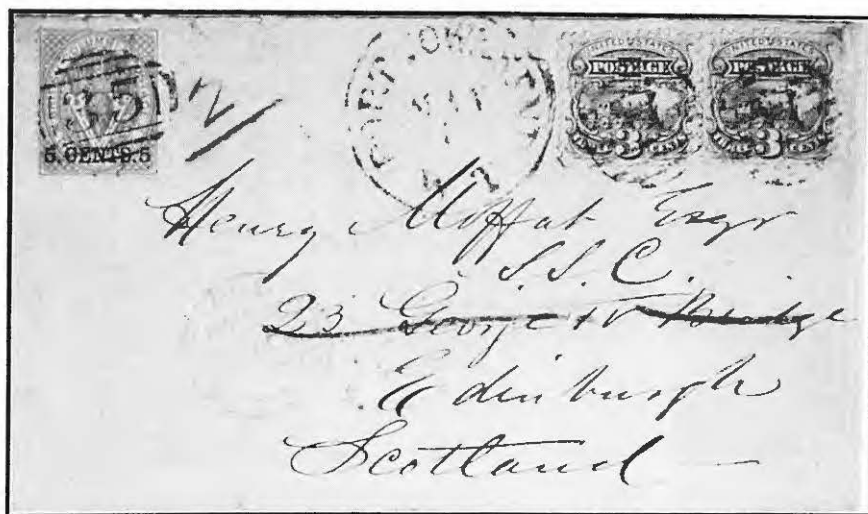 35
5.CENTS.5
2/
UNITED STATES
POSTAGE
3
UNITED STATES
POSTAGE
3
Henry Moffat Esqr
S.S.C.
23 George IV Bridge
Edinburgh
Scotland